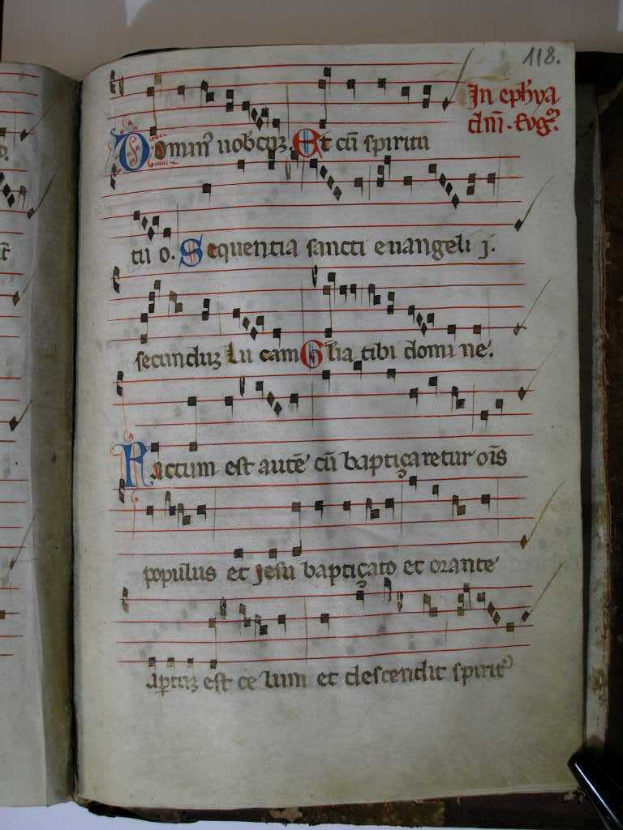 118.
In ephya
dni. Evg.
Domin' uobcuz. Et cu spiritu
tu o. Sequentia sancti euangeli j.
secunduz Lu cam Glia tibi domi ne.
Factum est aute cu baptiçaretur ois
populus et Jesu baptiçato et orante
aptuz est ce lum et descendit spirit'